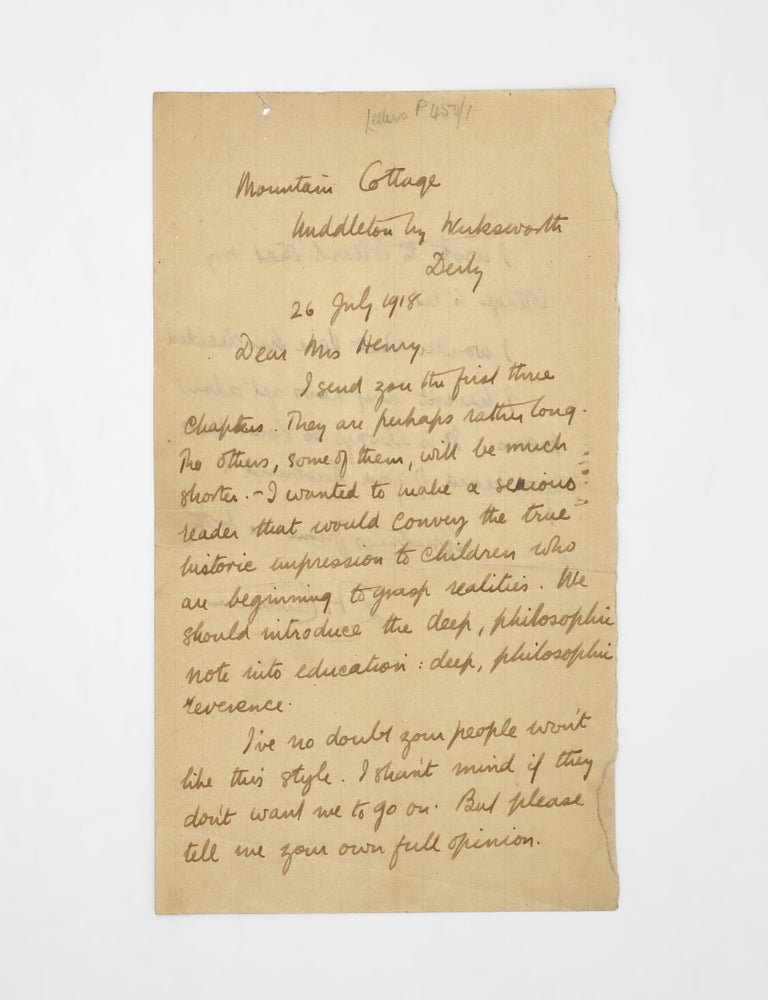 Letters P 450/1
Mountain Cottage
Middleton by Wirksworth
Derby
26 July 1918
Dear Mrs Henry
I send you the first three
chapters. They are perhaps rather long.
The others, some of them, will be much
shorter. – I wanted to make a serious
reader that would convey the true
historic impression to children who
are beginning to grasp realities. We
should introduce the deep, philosophic
note into education: deep, philosophic
reverence.
I've no doubt your people won't
like this style. I shan't mind if they
don't want me to go on. But please
tell me your own full opinion.